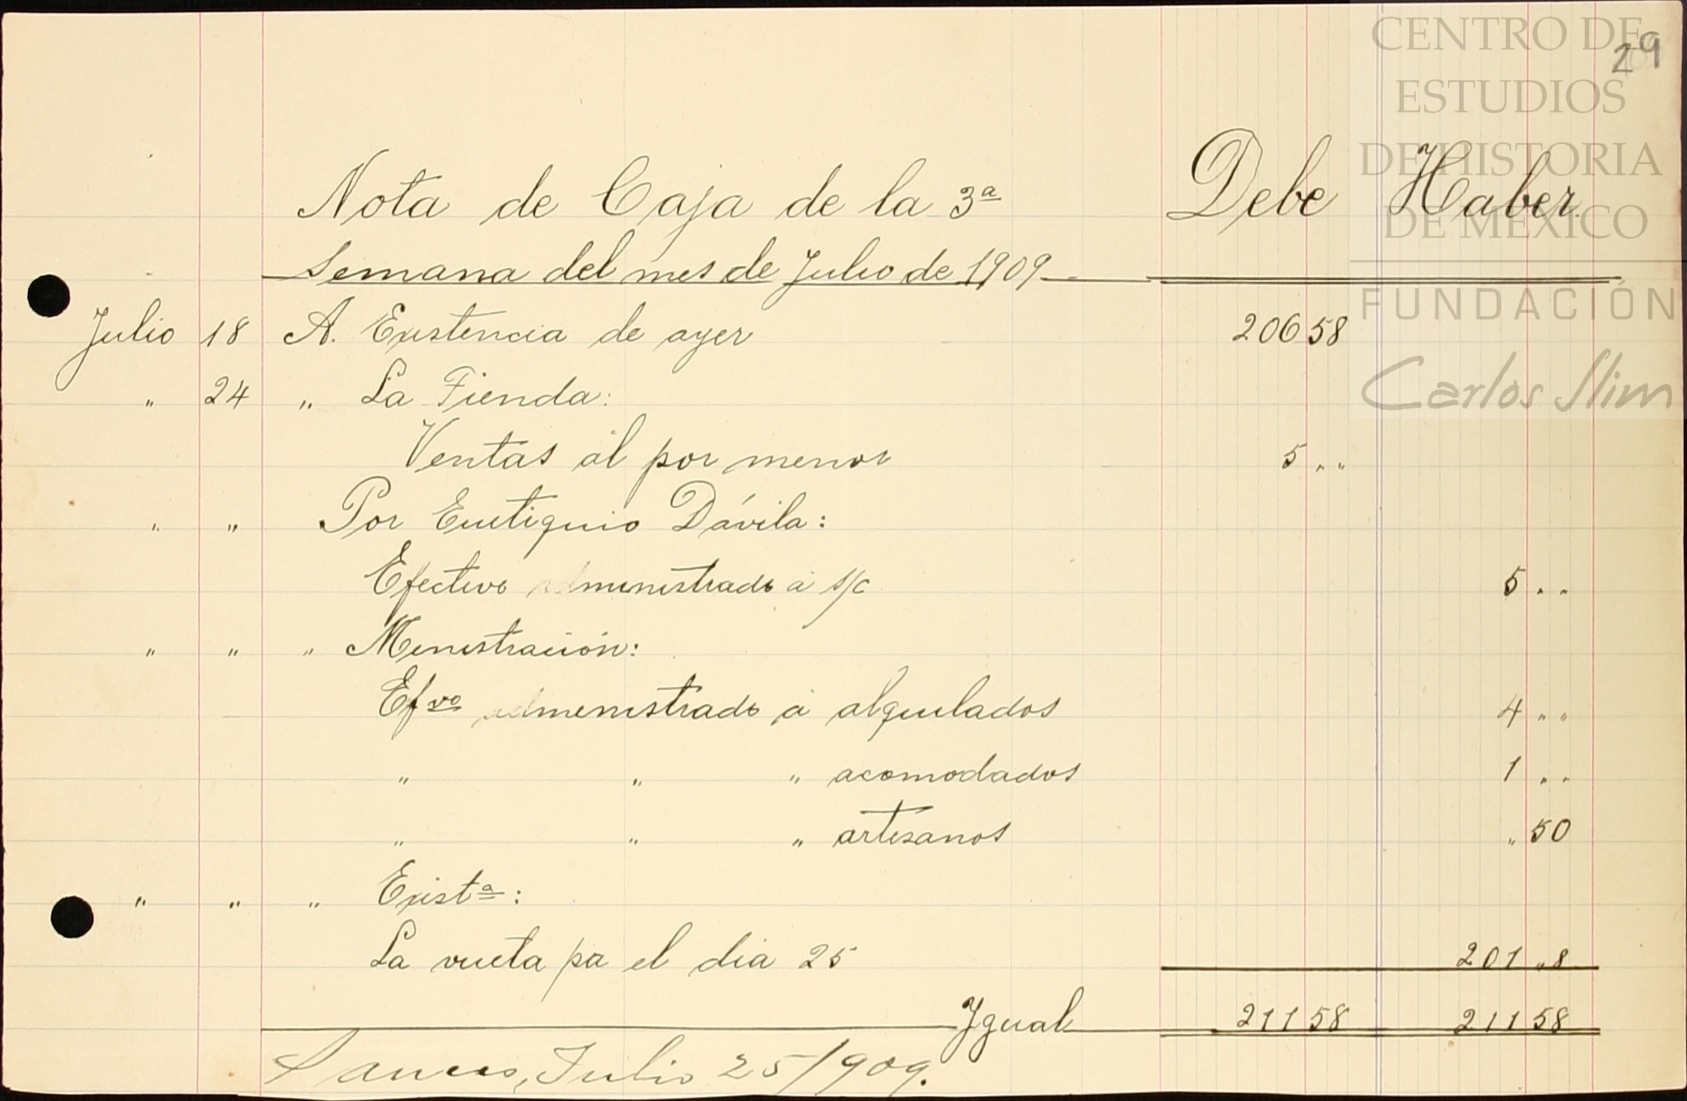 29
CENTRO DE
ESTUDIOS
DE HISTORIA
DE MÉXICO
FUNDACIÓN
Carlos Slim
Nota de Caja de la 3ª Debe Haber.
Semana del mes de Julio de 1909
Julio 18 A. Existencia de ayer 206 58
" 24 " La Tienda:
Ventas al por menor 5 " "
" " Por Eutiquio Dávila:
Efectivo administrado á s/c 5 " "
" " " Ministración:
Efvo administrado á alquilados 4 " "
" " " acomodados 1 " "
" " " artesanos " 50
" " " Existª:
La vueta pa el dia 25 201 " 8
Ygual 211 58 211 58
Julio 25/909.